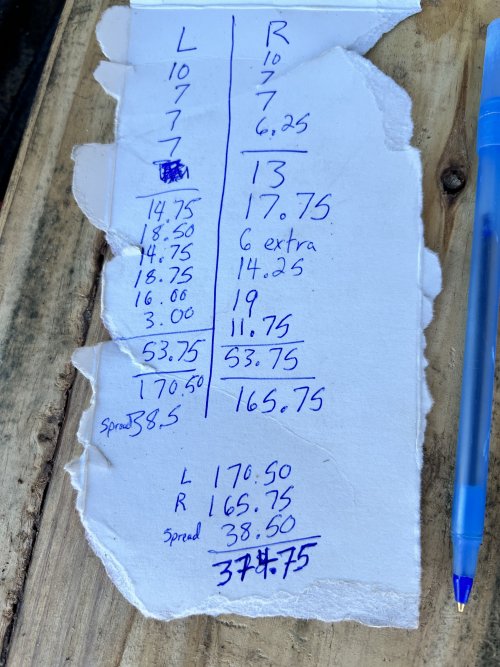 L R
10 10
7 7
7 7
7 6.25
14.75 13
18.50 17.75
14.75 6 extra
18.75 14.25
16.00 19
3.00 11.75
53.75 53.75
170.50 165.75
Spread 38.5
L 170.50
R 165.75
Spread 38.50
374.75